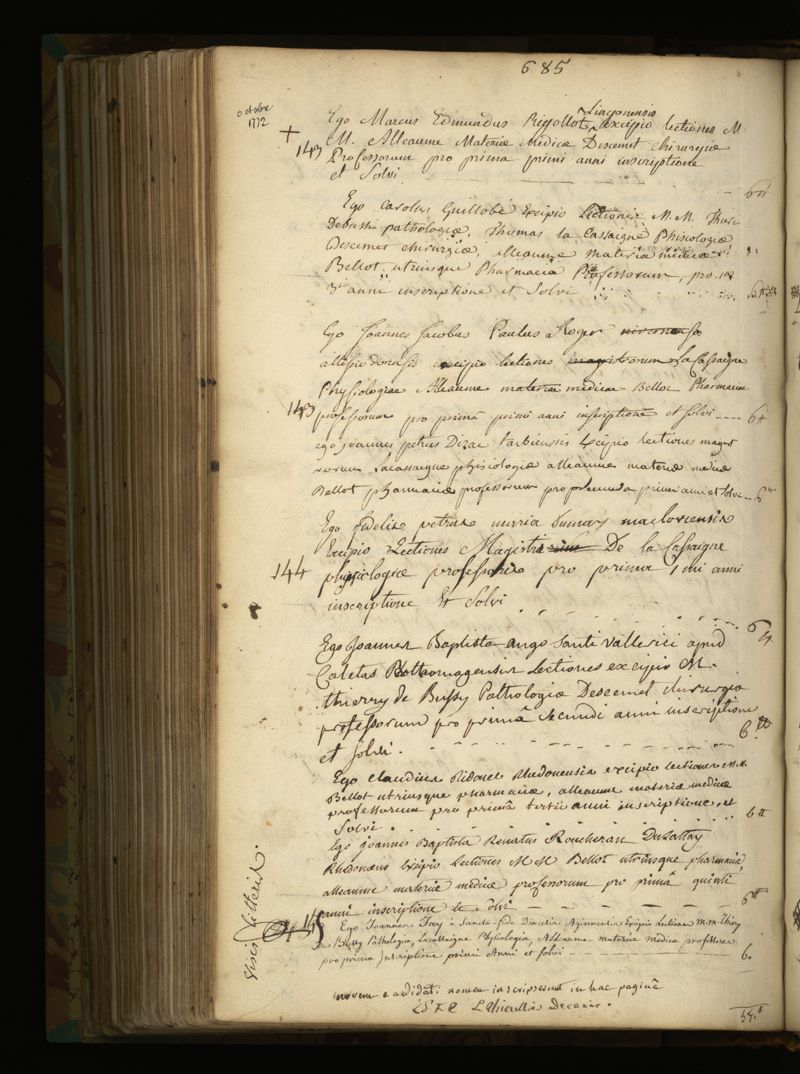 685
octobre
1772
Lingonensis
Ego Marcus Edmundus Rigollot excipio lectiones M.
+ M. Alleaume Materiæ Medicæ Descemet chirurgiæ
143 Professorum pro prima primi anni inscriptione
et Solvi 6tt
Ego Carolus Guillobé Excipio Lectiones M.M. Thieri
Debussi pathologiæ, Thomas la Cassaigne Phisiologiæ
Descemet chirurgiæ, Alleaume materiæ medicæ
Bellot utriusque Pharmacia Professorum, pro
3i anni inscriptione et Solvi 6tt
Ego Joannes Jacobus Paulus a Roger
excipio lectiones magistrorum La Cassaigne
Physiologiæ Alleaume materiæ medicæ Belloc Pharmaciæ
143 professorum pro primâ primi anni inscriptione et solvi 6tt
ego joannes petrus Dizac tarbiensis Excipio lectiones magist
rorum Lacassaigne phisiologiæ alleaume materiæ medicæ
Bellot pharmaciæ professorum pro secunda primi anni et solvi 6tt
Ego fidelis petrus maria Dumay macloviensis
Excipio Lectiones Magistri De la Cassaigne
144 physiologiæ professoris pro prima 1mi anni
inscriptione Et Solvi 6tt
Ego Joannes Baptista ango Santi Vallerici apud
Caletas Rothomagensis Lectiones excipio M.
thierry de Bussy Pathologia Descemet chirurgia
professorum pro primâ Secundi anni inscriptione
et solvi. 6tt
Ego claudius Ridouel Rhedonensis excipio lectiones M.M.
Bellot utriusque pharmaciæ, alleaume materiæ medicæ
professorum pro primâ tertii anni inscriptione, et
Solvi 6tt
Ego joannes Baptista Renatus Roucheran
Rhedonæus Excipio Lectiones M M Bellot utriusque pharmaciæ,
alleaume materiæ medicæ professorum pro primâ quinti
anni inscriptione et solvi 6tt
Ego Joannes à Sancta-fide Diœcesis Aginnensis Excipio lectiones M.M. Thiery
de Bussy Pathologia, Lacassaigne Physiologia, Alleaume materiæ medica professorum
pro prima Inscriptione primi Anni et solvi 6.
novem candidati nomen inscripserunt in hac paginâ
L Thieullier Decanus.
54.tt